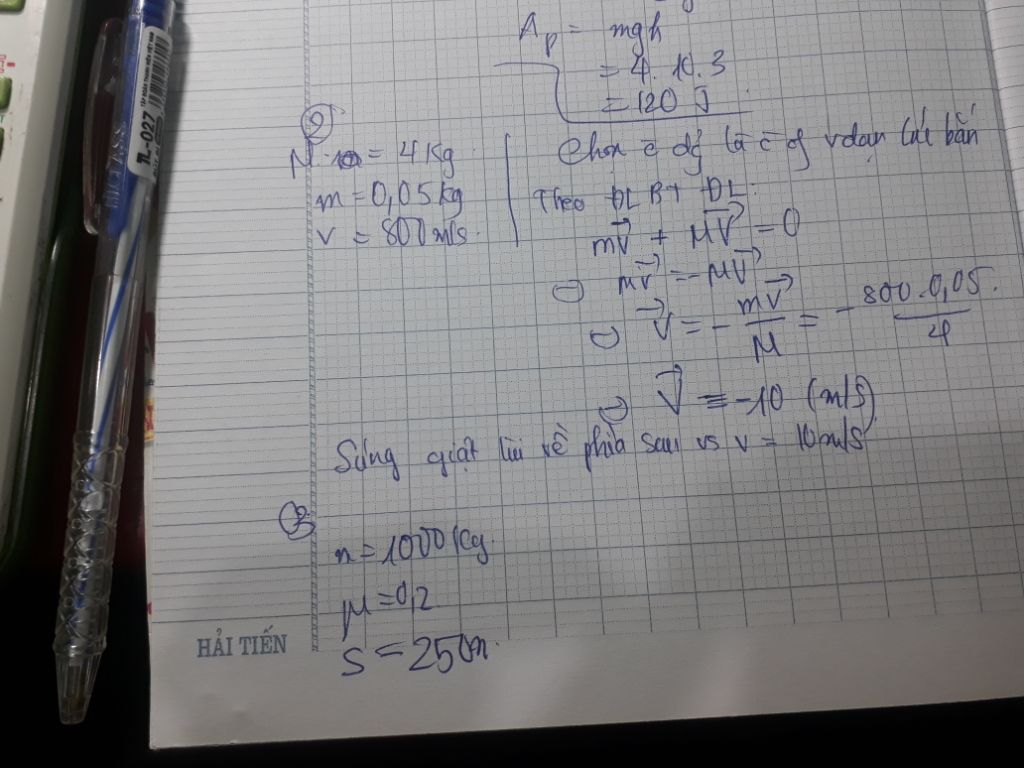 A_p = mgh
= 4.10.3
= 120 J
②
M = 4 Kg
m = 0,05 kg
v = 800 m/s
Chọn c đg là c đg vđạn lúc bắn
Theo ĐL BT ĐL:
mv⃗ + MV⃗ = 0
⇔ mv⃗ = - MV⃗
⇔ V⃗ = - mv⃗/M = - 800.0,05/4
⇔ V⃗ = -10 (m/s)
Súng giật lùi về phía sau vs v = 10 m/s
③
m = 1000 Kg
μ = 0,2
HẢI TIẾN
TL-027